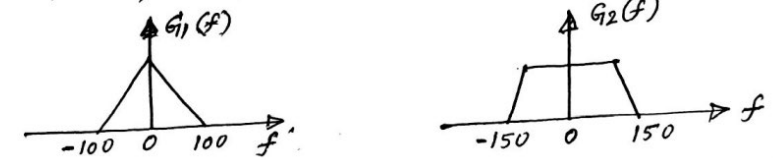 G₁(f)
-100 0 100 f
G₂(f)
-150 0 150 f